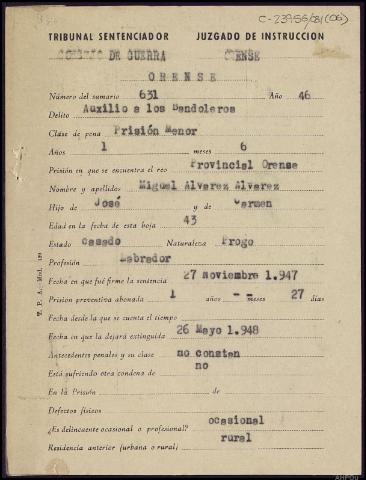 C-23956/81(06)
TRIBUNAL SENTENCIADOR JUZGADO DE INSTRUCCION
DE GUERRA ORENSE
ORENSE
Número del sumario 631 Año 46
Delito Auxilio a los Bandoleros
Clase de pena Prisión Menor
Años 1 meses 6
Prisión en que se encuentra el reo Provincial Orense
Nombre y apellidos Miguel Alvarez Alvarez
Hijo de José y de Carmen
Edad en la fecha de esta hoja 43
Estado casado Naturaleza Progo
Profesión Labrador
Fecha en que fué firme la sentencia 27 noviembre 1.947
Prisión preventiva abonada 1 años -- meses 27 días
Fecha desde la que se cuenta el tiempo
Fecha en que la dejará extinguida 26 Mayo 1.948
Antecedentes penales y su clase no constan
Está sufriendo otra condena de no
En la Prisión de
Defectos físicos
¿Es delincuente ocasional o profesional? ocasional
Residencia anterior (urbana o rural) rural
T. P. A. - Mod. 189
AHPOu